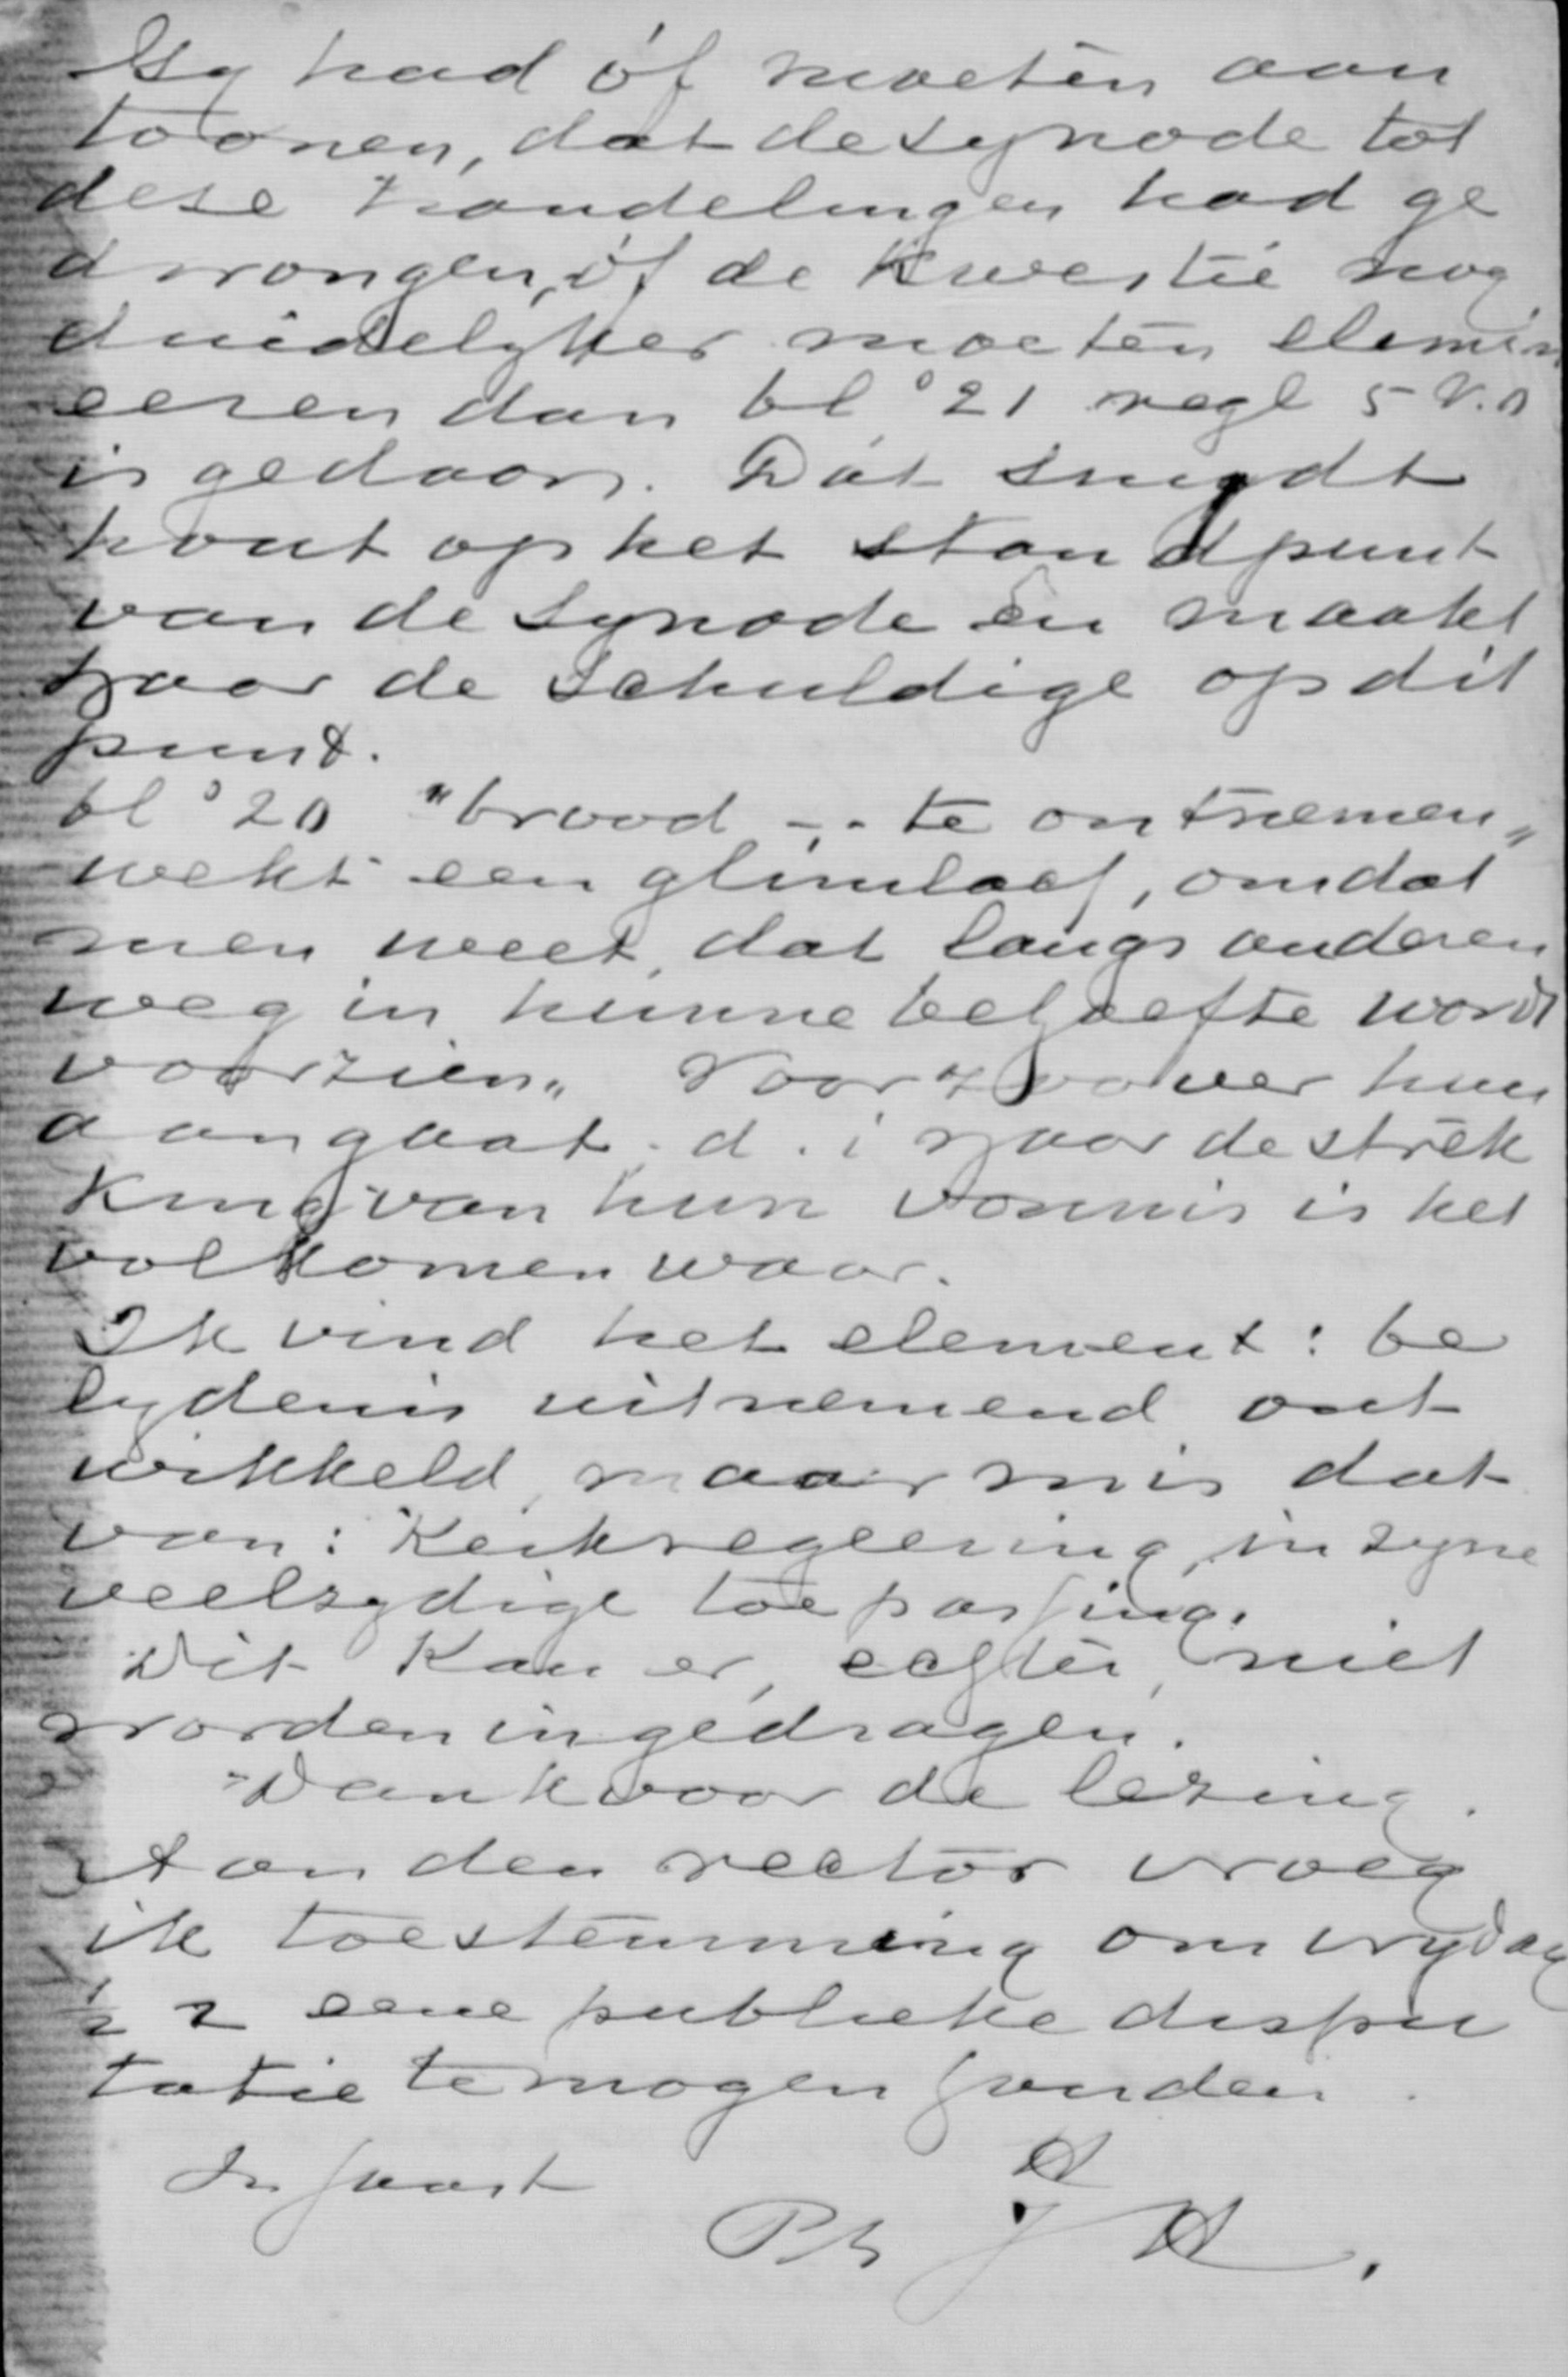 Gy had óf moeten aan
toonen, dat de synode tot
deze handelingen had ge
drongen, óf de kwestie nog
duidelyker moeten elemin
eeren dan bl° 21 regl 5 v.o
is gedaan. Dát snydt
hout op het standpunt
van de synode én maakt
haar de schuldige op dit
punt.
bl° 20 "brood -.- te ontnemen„
wekt een glimlach, omdat
men weet, dat langs anderen
weg in hunne behoefte wordt
voorzien„ Voorzoover hun
aangaat. d. i naar de strek
king van hun vonnis is het
volkomen waar.
Ik vind het element: be
lydenis uitnemend ont
wikkeld, maar mis dat
van: Kerkregeering, in zyne
veelzydige toepassing.
Dit kan er, echter, niet
worden ingedragen.
Dank voor de lezing.
Aan den rector vroeg
ik toestemming om vrydag
½ 2 eene publieke dispu
tatie te mogen houden.
In haast
t.t.
Ph J H.